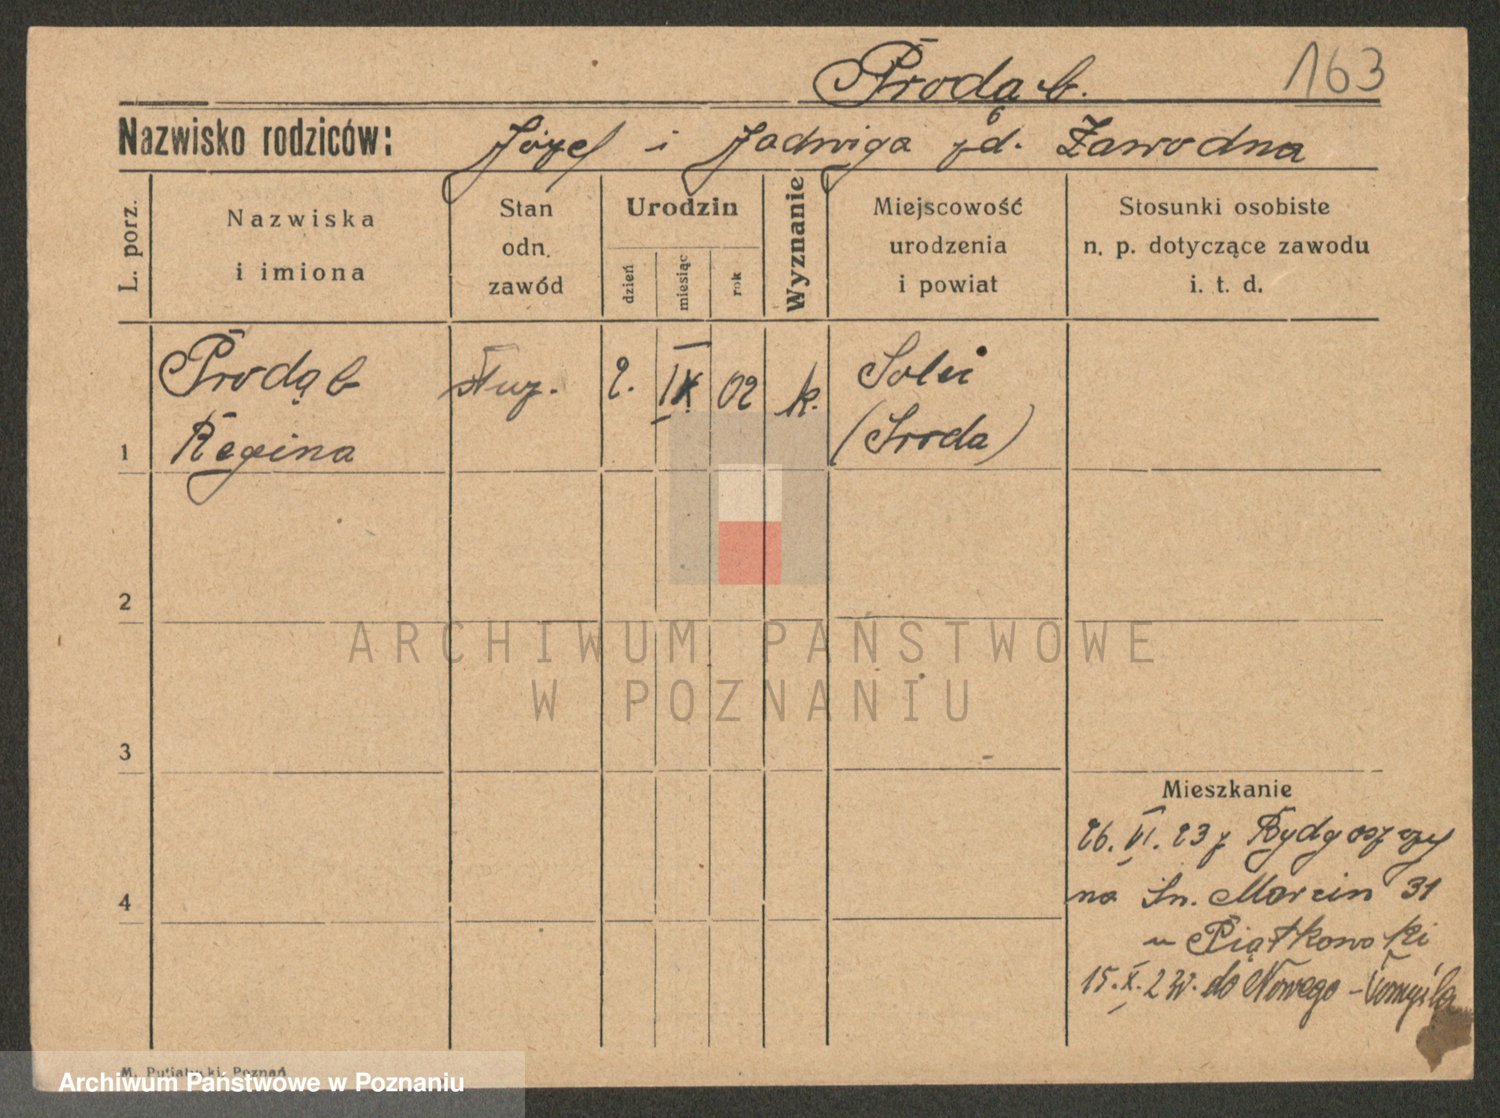 Prodąb. 163
Nazwisko rodziców: Józef i Jadwiga zd. Zawodna
L. porz.
Nazwiska
i imiona
Stan
odn.
zawód
Urodzin
dzień
miesiąc
rok
Wyznanie
Miejscowość
urodzenia
i powiat
Stosunki osobiste
n. p. dotyczące zawodu
i. t. d.
1
Prodąb
Regina
służ.
2.
IX
02
k.
(Środa)
2
ARCHIWUM PAŃSTWOWE
W POZNANIU
3
4
Mieszkanie
26. VI. 23 z Bydgoszczy
na Św. Marcin 31
u Piątkowski
15. X. do Nowego-Tomyśla
M. Putiatycki, Poznań
Archiwum Państwowe w Poznaniu